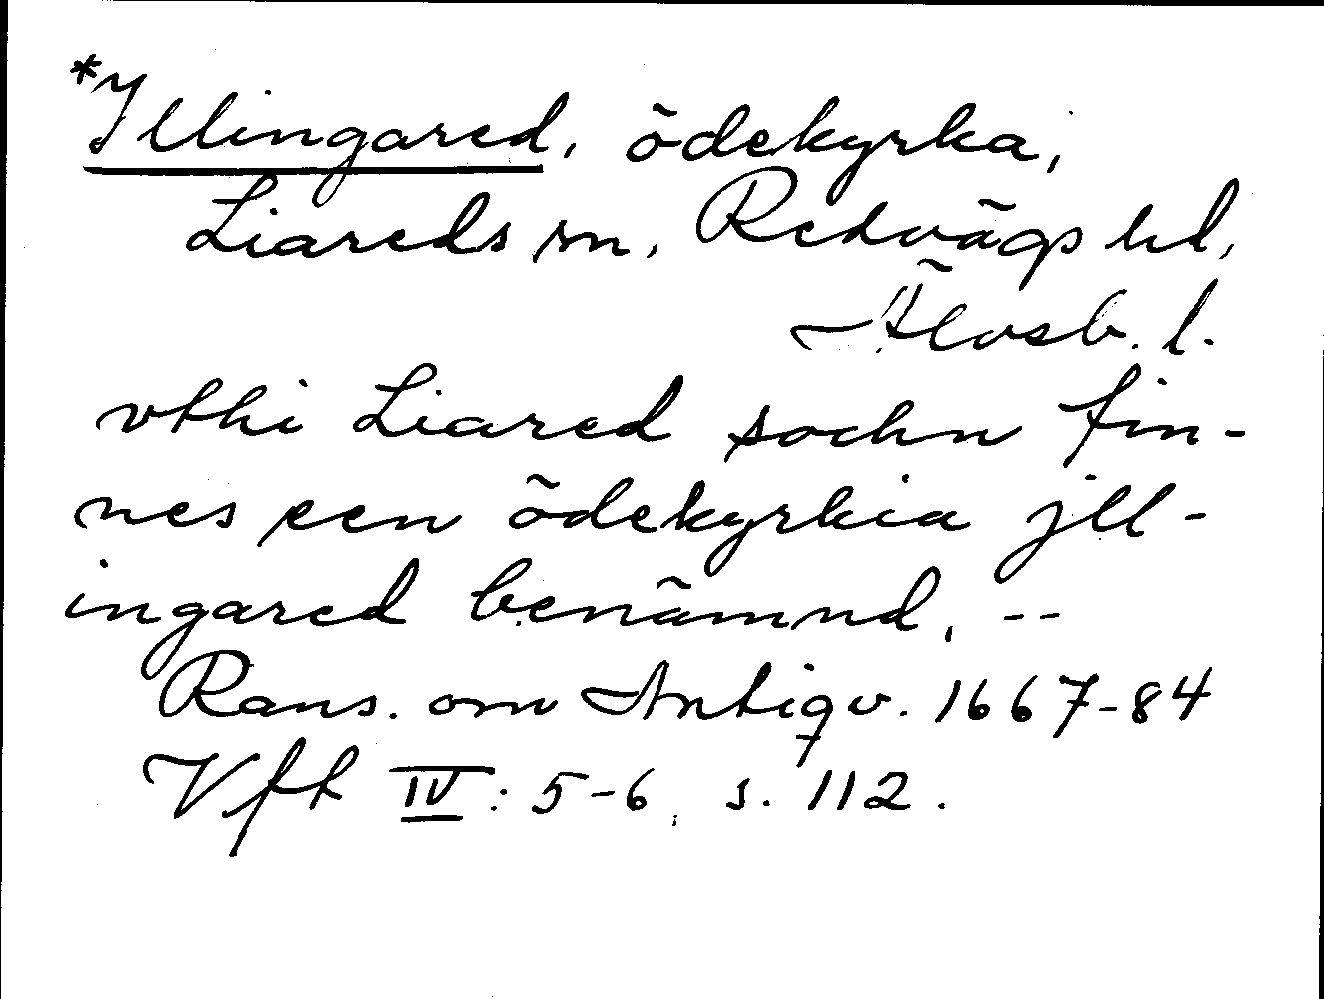 *Illingared, ödekyrka,
Liareds sn, Redvägs hd,
Älvsb. l.
vthi Liared sochn fin-
nes een ödekyrkia jll-
ingared benämnd, --
Rans. om Antiqv. 1667-84
Vft IV: 5-6, s. 112.